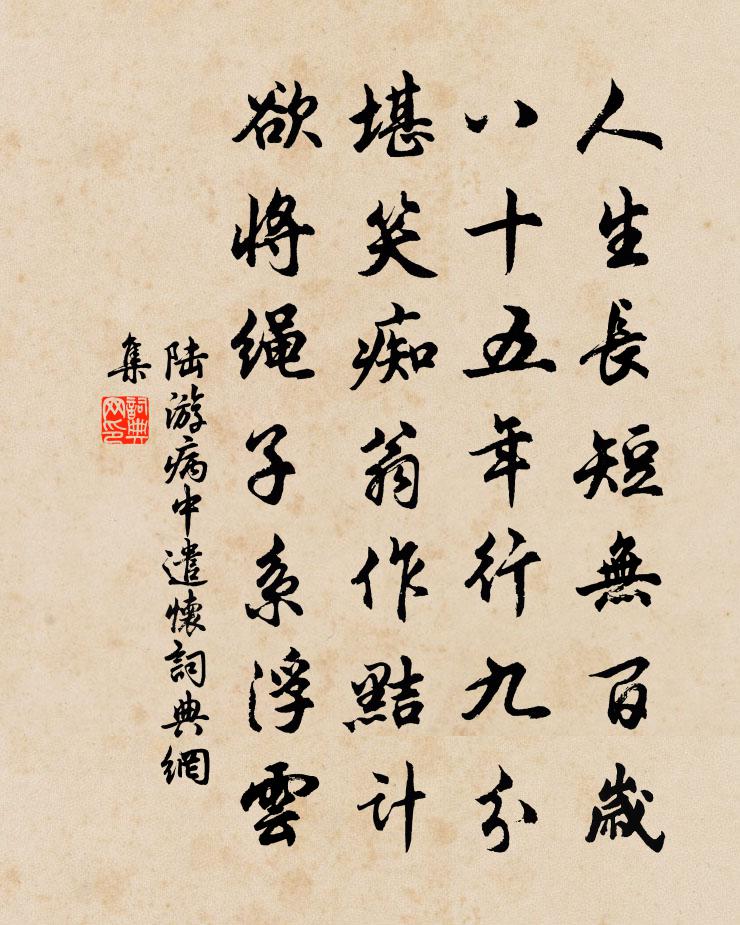 人生長短無百歲
八十五年行九分
堪笑痴翁作黠計
欲將绳子系浮雲
陆游病中遣懷詞典網
集
詞典
网印